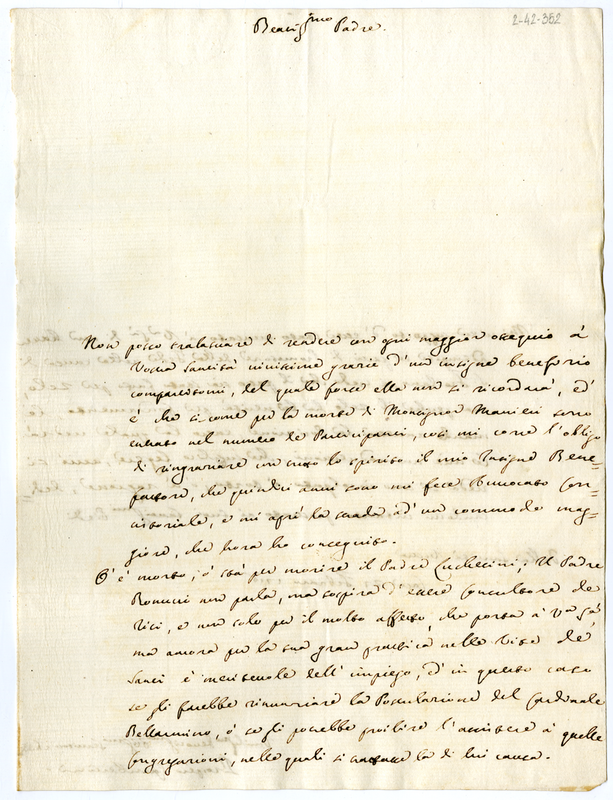 Beatiss.mo Padre.
2-42-352
Non posso tralasciare di rendere con ogni maggior ossequio à
Vostra Santità vivissime grazie d'un insigne beneficio
compartitomi, del quale forse ella non si ricordarà, ed
è che si come per la morte di Monsignor Manieri sono
entrato nel numero de Participanti, così mi corre l'obligo
di ringraziare con tutto lo spirito il mio Insigne Bene-
fattore, che quindici anni sono mi fece Avvocato Con-
cistoriale, e mi aprì la strada ad un commodo mag-
giore, che hora ho conseguito.
O' è morto, ò stà per morire il Padre Lucchesini; Il Padre
Bonucci non parla, ma sospira d'essere Consultore de
Riti, e non solo per il molto affetto, che porta à V.a S.tà
ma ancora per la sua gran prattica nelle Vite de'
Santi è meritevole dell'impiego, ed in questo caso
se gli farebbe rinunziare la Postulazione del Cardinale
Bellarmino, ò se gli potrebbe proibire l'assistere à quelle
Congregazioni, nelle quali si trattasse la di lui causa.